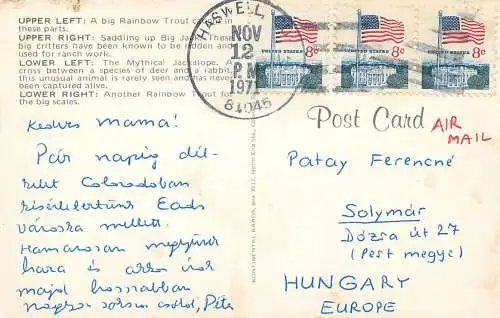 UPPER LEFT: A big Rainbow Trout ca in
these parts.
UPPER RIGHT: Saddling up Big Ja These
big critters have been known to be ridden and
used for ranch work.
LOWER LEFT: The Mythical Jackalope. A
cross between a species of deer and a rabbit,
this unusual animal is rarely seen and has never
been captured alive.
LOWER RIGHT: Another Rainbow Trout for
the big scales.
HASWELL,
NOV
12
P.M
1971
81045
UNITED STATES 8c
UNITED STATES 8c
UNITED STATES 8c
Post Card
AIR
MAIL
Kedves Mama!
Pár napig dél-
kelet Coloradoban
kísérleteztünk Eads
városka mellett.
Hamarosan megyünk
haza és akkor írok
majd hosszabban
sokszor csókol, Péter
CONTINENTAL KARDS, Box
Patay Ferencné
Solymár
Dózsa út 27
(Pest megye)
HUNGARY
EUROPE